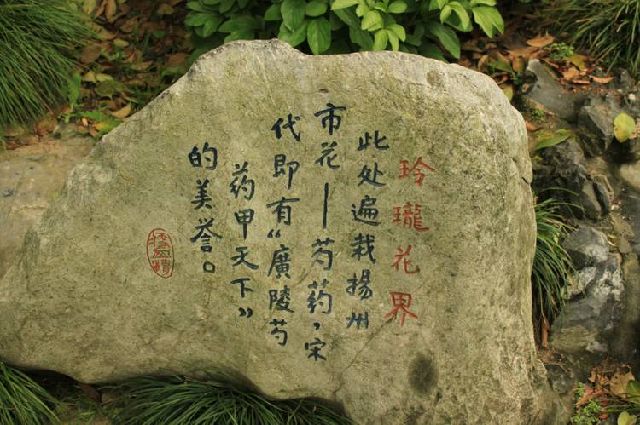 玲瓏花界
此处遍栽揚州
市花——芍药，宋
代即有“廣陵芍
药甲天下”
的美誉。